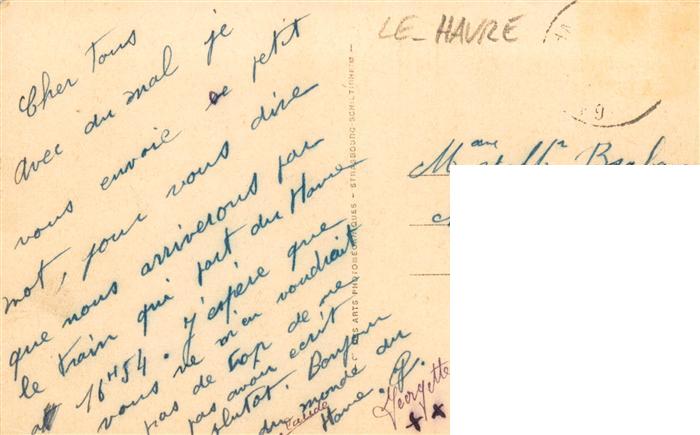 Cher Tous
avec du mal je
vous envoie ce petit
mot, pour vous dire
que nous arriverons par
le train qui part du Havre
at 16H54. J'espère que
vous ne m'en voudrait
pas de trop de ne
pas avoir ecrit
plutot. Bonjour
du monde du
Havre. P.
Claude
Georgette
LE-HAVRE
Mme et Mr
DES ARTS PHOTOMÉCANIQUES - STRASBOURG-SCHILTIGHEIM -